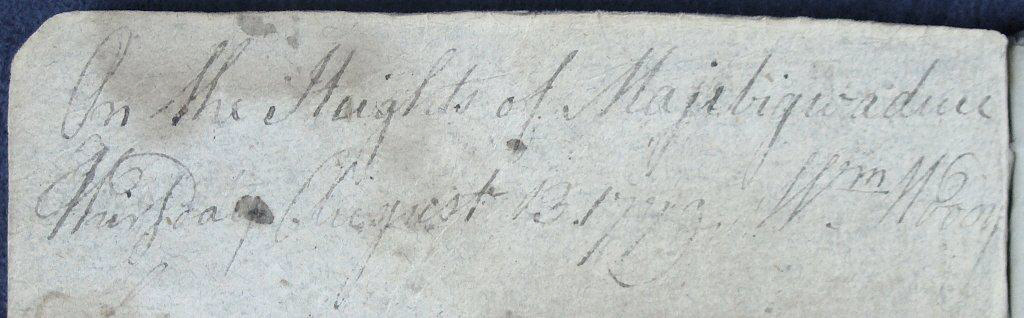 On the Heights of Majebigwaduce
Thursday August 13 1779 Wm Moody